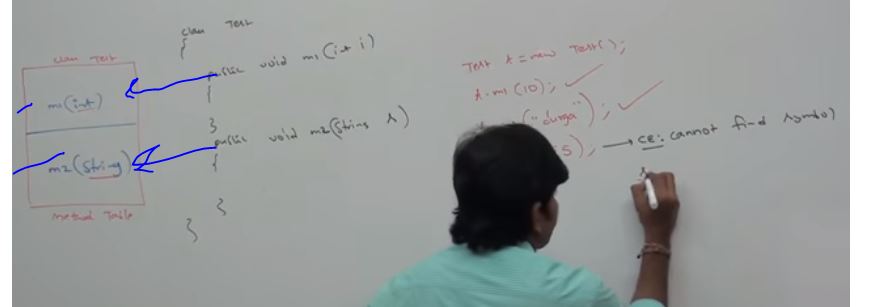 class Test
m1(int)
m2(String)
Method Table
class Test
{
public void m1(int i)
{
}
public void m2(String s)
{
}
}
Test t = new Test();
t.m1(10);
("durga");
5); → CE: cannot find symbol